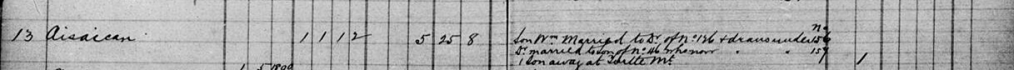 No
13 Aisaican 1 1 1 2 5 25 8 Son Wm Married to Dr. of No 126 & draws under 156
Dr. married to son of No 46 who now " " 157 1
1 son away at Turtle Mt.